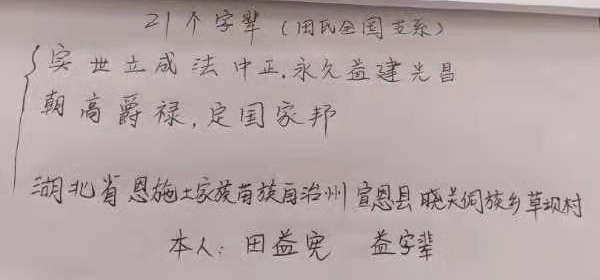 21个字辈（田氏全国支系）
实世立成法中正.永久益建光昌
朝高爵禄,定国家邦
湖北省恩施土家族苗族自治州宣恩县晓关侗族乡草坝村
本人:田益宪 益字辈